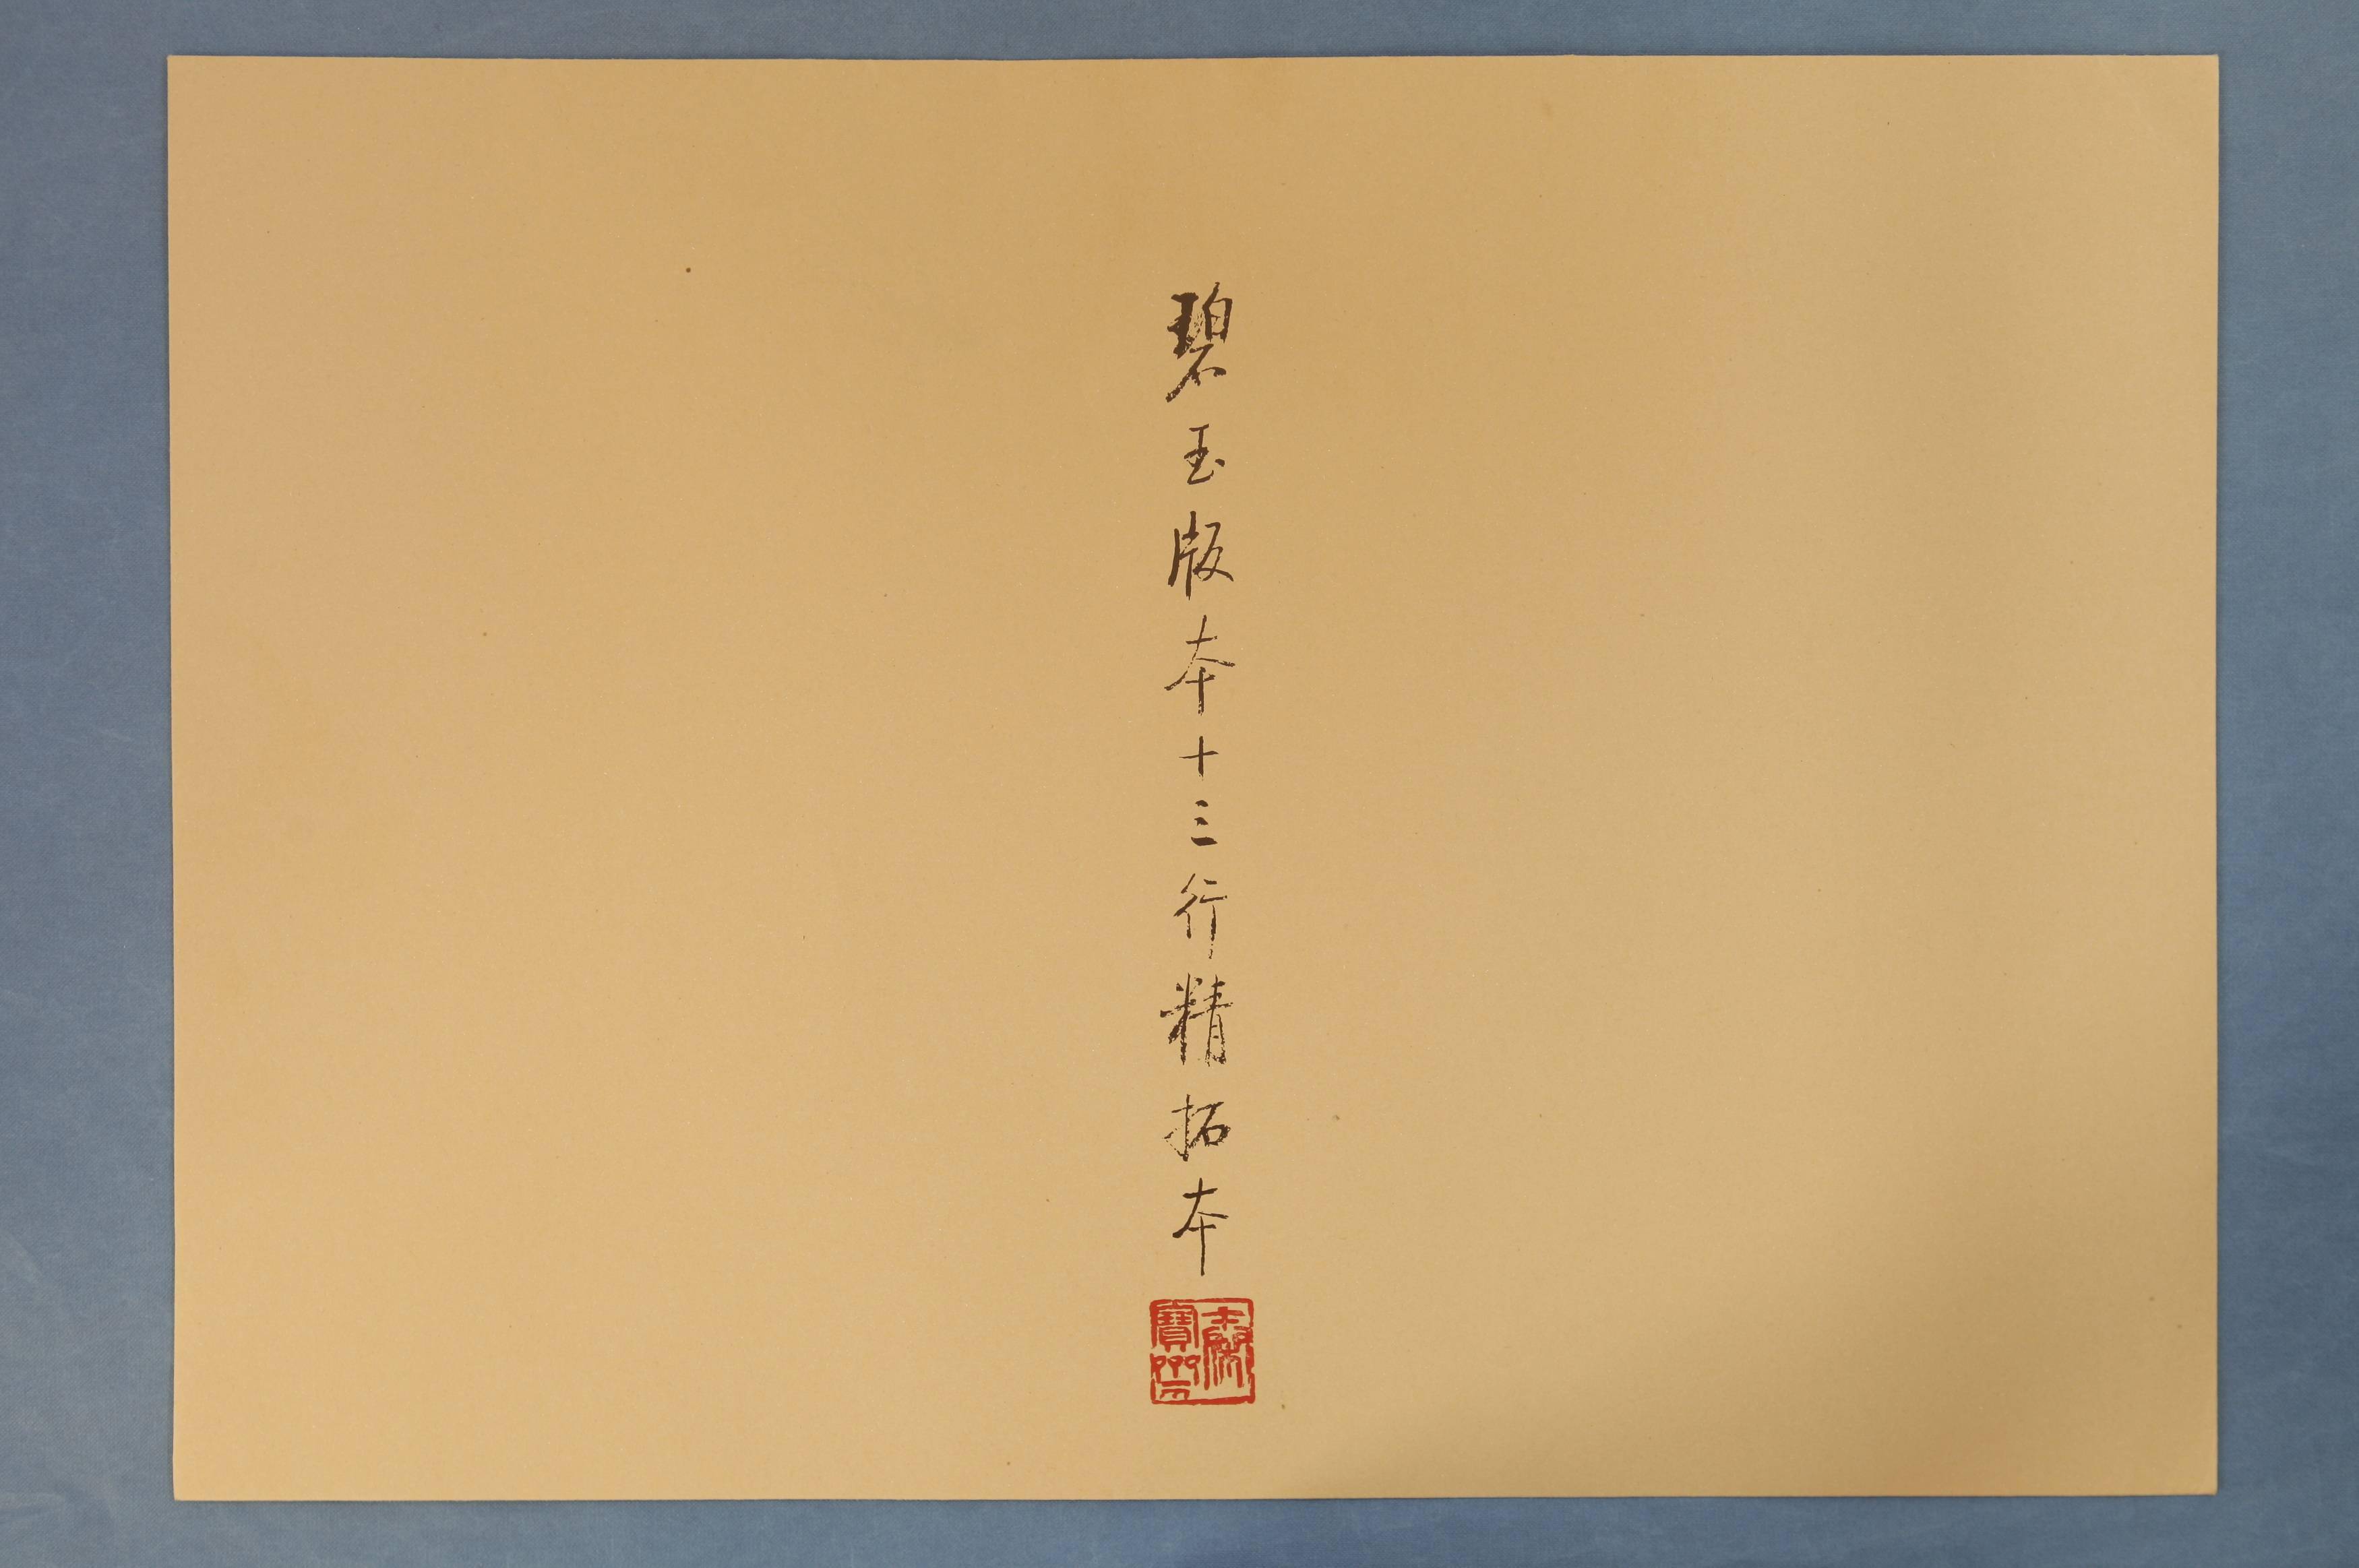 碧玉版本十三行精拓本